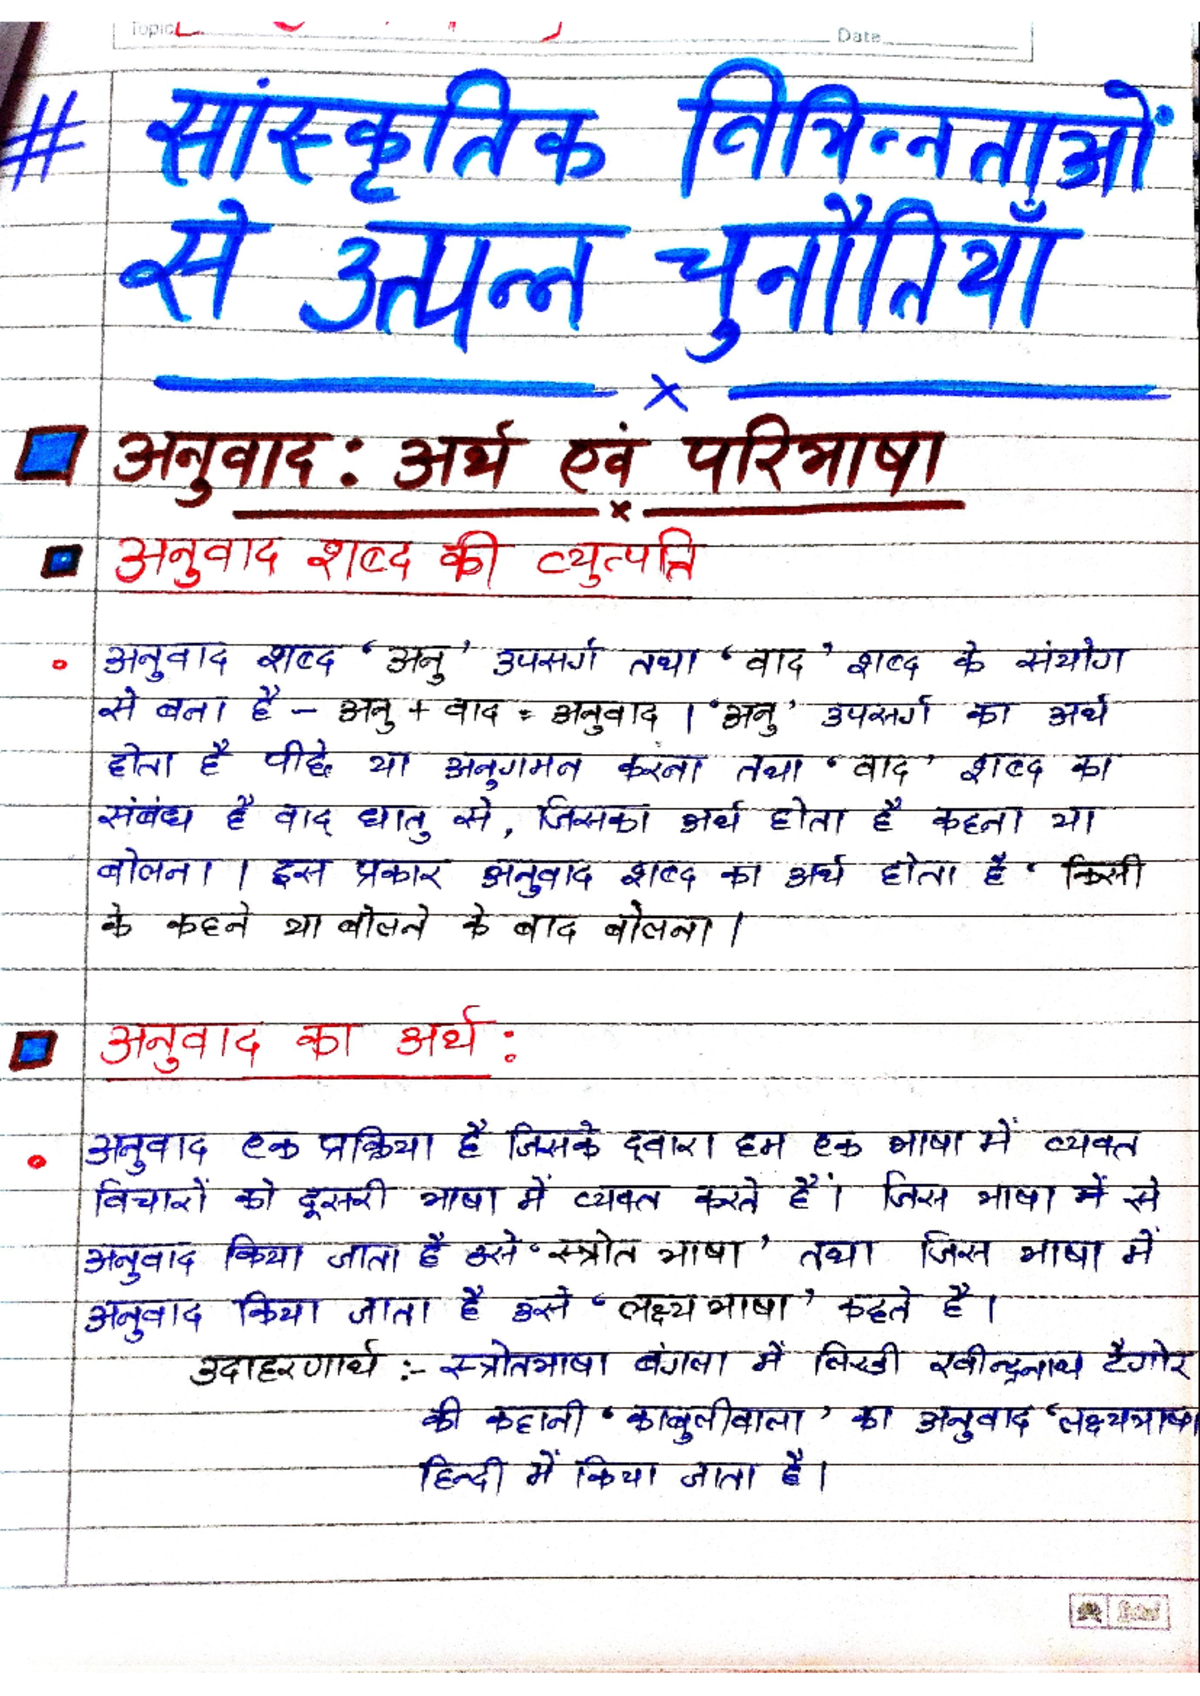 Topic
Date
# सांस्कृतिक विभिन्नताओं
से उत्पन्न चुनौतियाँ
अनुवाद : अर्थ एवं परिभाषा
अनुवाद शब्द की व्युत्पत्ति
अनुवाद शब्द ‘अनु’ उपसर्ग तथा ‘वाद’ शब्द के संयोग
से बना है – अनु + वाद = अनुवाद । ‘अनु’ उपसर्ग का अर्थ
होता है पीछे या अनुगमन करना तथा ‘वाद’ शब्द का
संबंध है वाद् धातु से, जिसका अर्थ होता है कहना या
बोलना । इस प्रकार अनुवाद शब्द का अर्थ होता है ‘ किसी
के कहने या बोलने के बाद बोलना ।
अनुवाद का अर्थ :
अनुवाद एक प्रक्रिया है जिसके द्वारा हम एक भाषा में व्यक्त
विचारों को दूसरी भाषा में व्यक्त करते हैं। जिस भाषा में से
अनुवाद किया जाता है उसे ‘स्त्रोत भाषा’ तथा जिस भाषा में
अनुवाद किया जाता है उसे ‘लक्ष्य भाषा’ कहते है ।
उदाहरणार्थ :- स्त्रोतभाषा बंगला में लिखी रवीन्द्रनाथ टैगोर
की कहानी ‘काबुलीवाला’ का अनुवाद ‘लक्ष्यभाषा
हिन्दी में किया जाता है ।